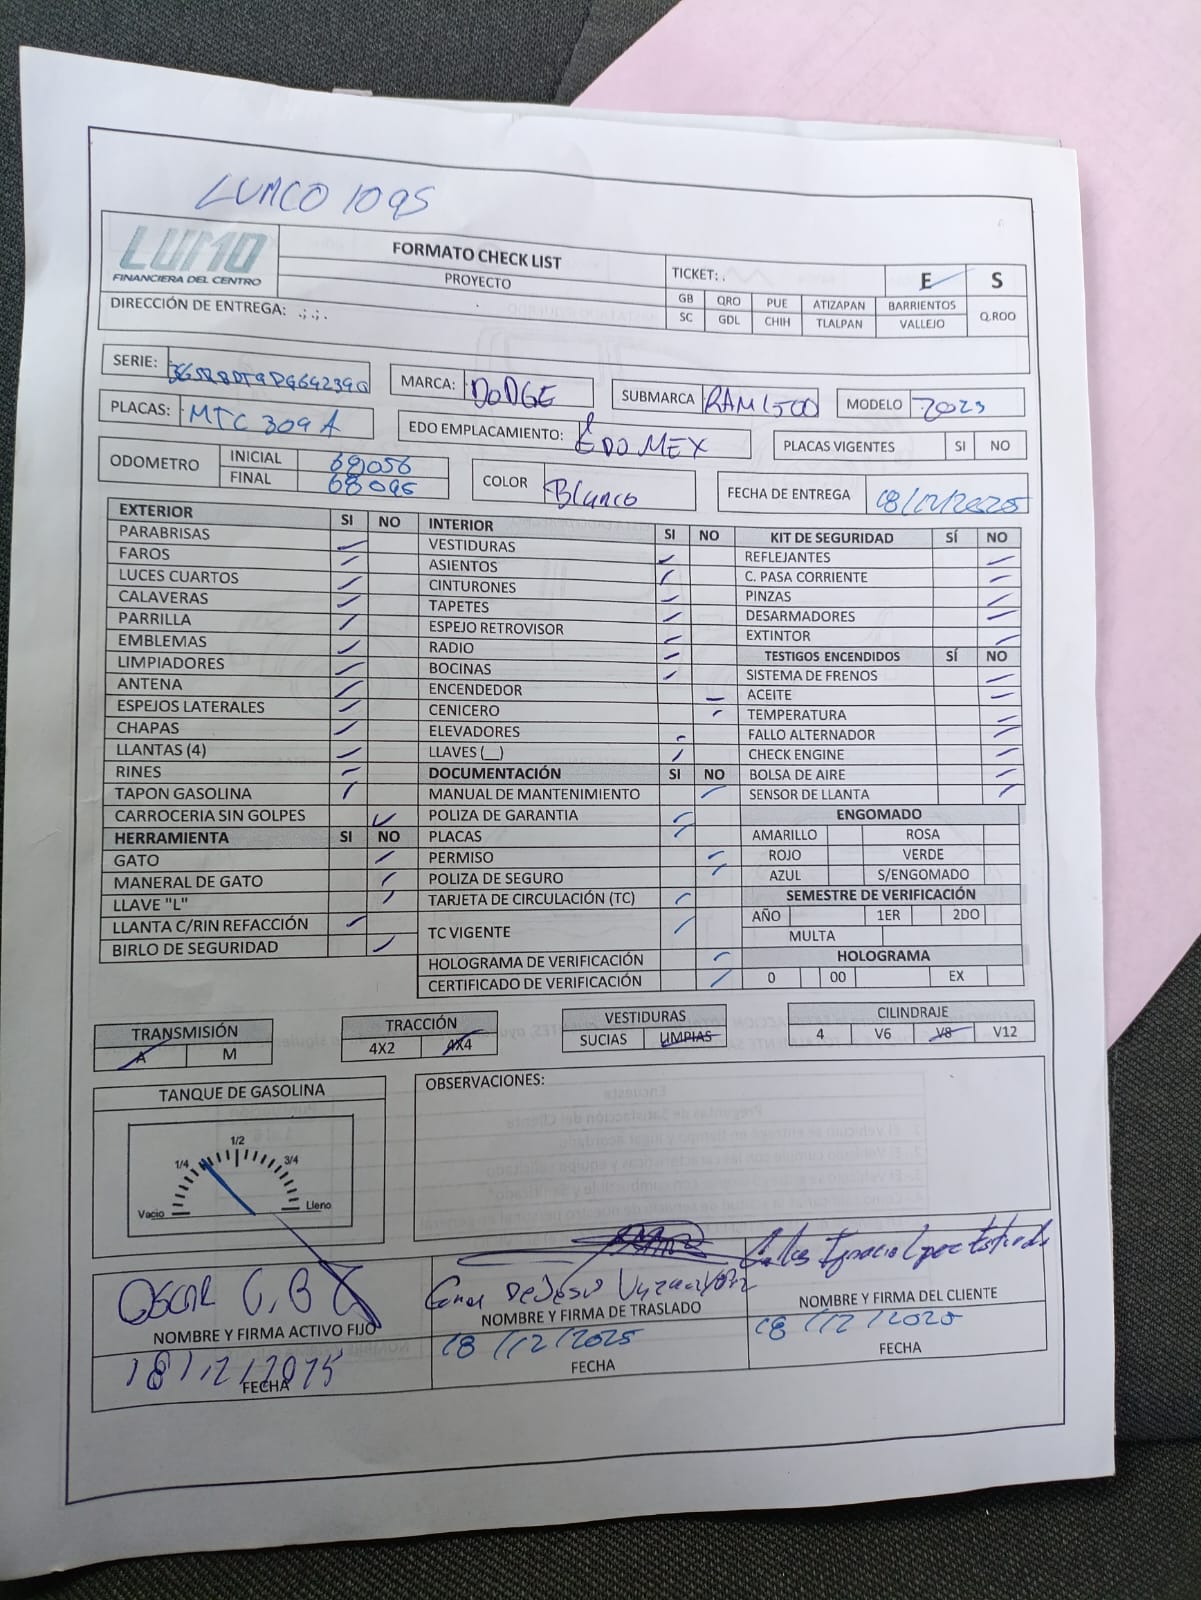 LUMCO 1095
LUMO
FINANCIERA DEL CENTRO
FORMATO CHECK LIST
PROYECTO
TICKET: .
E S
GB QRO PUE ATIZAPAN BARRIENTOS Q.ROO
SC GDL CHIH TLALPAN VALLEJO
DIRECCIÓN DE ENTREGA: .;.;.
SERIE:
MARCA: DODGE
SUBMARCA RAM 1500
MODELO 2023
PLACAS: MTC 309 A
EDO EMPLACAMIENTO: EDO MEX
PLACAS VIGENTES SI NO
ODOMETRO INICIAL 68056
FINAL 68095
COLOR Blanco
FECHA DE ENTREGA 18/12/2025
EXTERIOR SI NO
PARABRISAS
FAROS
LUCES CUARTOS
CALAVERAS
PARRILLA
EMBLEMAS
LIMPIADORES
ANTENA
ESPEJOS LATERALES
CHAPAS
LLANTAS (4)
RINES
TAPON GASOLINA
CARROCERIA SIN GOLPES
HERRAMIENTA SI NO
GATO
MANERAL DE GATO
LLAVE "L"
LLANTA C/RIN REFACCIÓN
BIRLO DE SEGURIDAD
INTERIOR SI NO
VESTIDURAS
ASIENTOS
CINTURONES
TAPETES
ESPEJO RETROVISOR
RADIO
BOCINAS
ENCENDEDOR
CENICERO
ELEVADORES
LLAVES (__)
DOCUMENTACIÓN SI NO
MANUAL DE MANTENIMIENTO
POLIZA DE GARANTIA
PLACAS
PERMISO
POLIZA DE SEGURO
TARJETA DE CIRCULACIÓN (TC)
TC VIGENTE
HOLOGRAMA DE VERIFICACIÓN
CERTIFICADO DE VERIFICACIÓN
KIT DE SEGURIDAD SÍ NO
REFLEJANTES
C. PASA CORRIENTE
PINZAS
DESARMADORES
EXTINTOR
TESTIGOS ENCENDIDOS SÍ NO
SISTEMA DE FRENOS
ACEITE
TEMPERATURA
FALLO ALTERNADOR
CHECK ENGINE
BOLSA DE AIRE
SENSOR DE LLANTA
ENGOMADO
AMARILLO ROSA
ROJO VERDE
AZUL S/ENGOMADO
SEMESTRE DE VERIFICACIÓN
AÑO 1ER 2DO
MULTA
HOLOGRAMA
0 00 EX
TRANSMISIÓN
A M
TRACCIÓN
4X2 4X4
VESTIDURAS
SUCIAS LIMPIAS
CILINDRAJE
4 V6 V8 V12
TANQUE DE GASOLINA
Vacio 1/4 1/2 3/4 Lleno
OBSERVACIONES:
OSCAR C.
NOMBRE Y FIRMA ACTIVO FIJO
18/12/2025
FECHA
De Jesus
NOMBRE Y FIRMA DE TRASLADO
18/12/2025
FECHA
Carlos Ignacio Lopez Estrada
NOMBRE Y FIRMA DEL CLIENTE
18/12/2025
FECHA